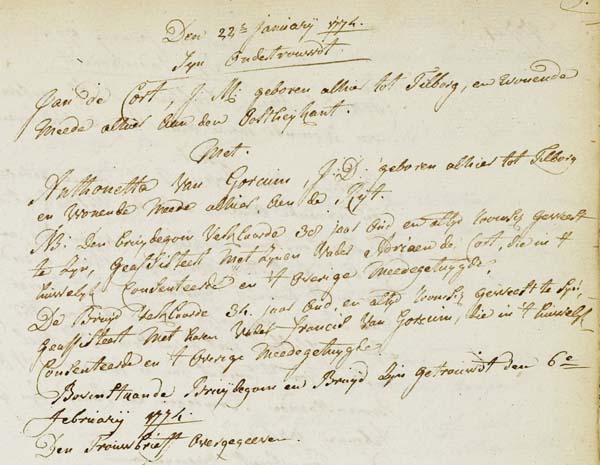 Den 22e January 1774.
Zijn Ondertrouwt.
Jan de Cort, J: M: geboren alhier tot Tilborg, en Wonende
Meede alhier aan den Oostheijkant.
Met.
Anthonetta Van Gorcum, J: D: geboren alhier tot Tilborg
en Wonende Meede alhier aen de Rijt.
NB: Den bruijdegom Verklaarde 30 jaar Oud, en altijd geweest
te Zijn, Geassisteert Met Zijnen Vader Adriaen de Cort, die in 't
huwelijk Consenteerde en 't Overige Meedegetuijghe.
De Bruijd Verklaarde 34 jaar Oud, en altijd geweest te Zijn,
geassisteert Met haren Vader Francis Van Gorcum, die in 't huwelijk
Consenteerde en 't Overige Meedegetuijghe.
Bovenstaande Bruijdegom en Bruijd Zijn getrouwdt den 6e
February 1774.
Den Trouwbrieff Overgegeeven.